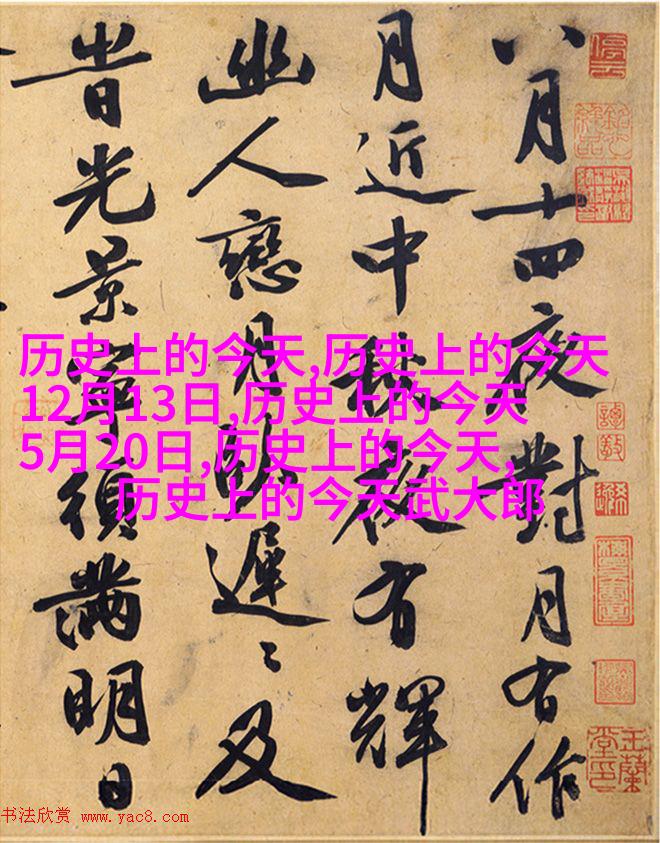 八月十四夜對月有作
月近中秋夜有輝
幽人戀月臥遲〻及
旹光景寧須滿明日
历史上的今天,历史上的今天
12月13日,历史上的今天
5月20日,历史上的今天,
历史上的今天武大郎
停云
玉蘭堂印
书法欣赏 www.yac8.com